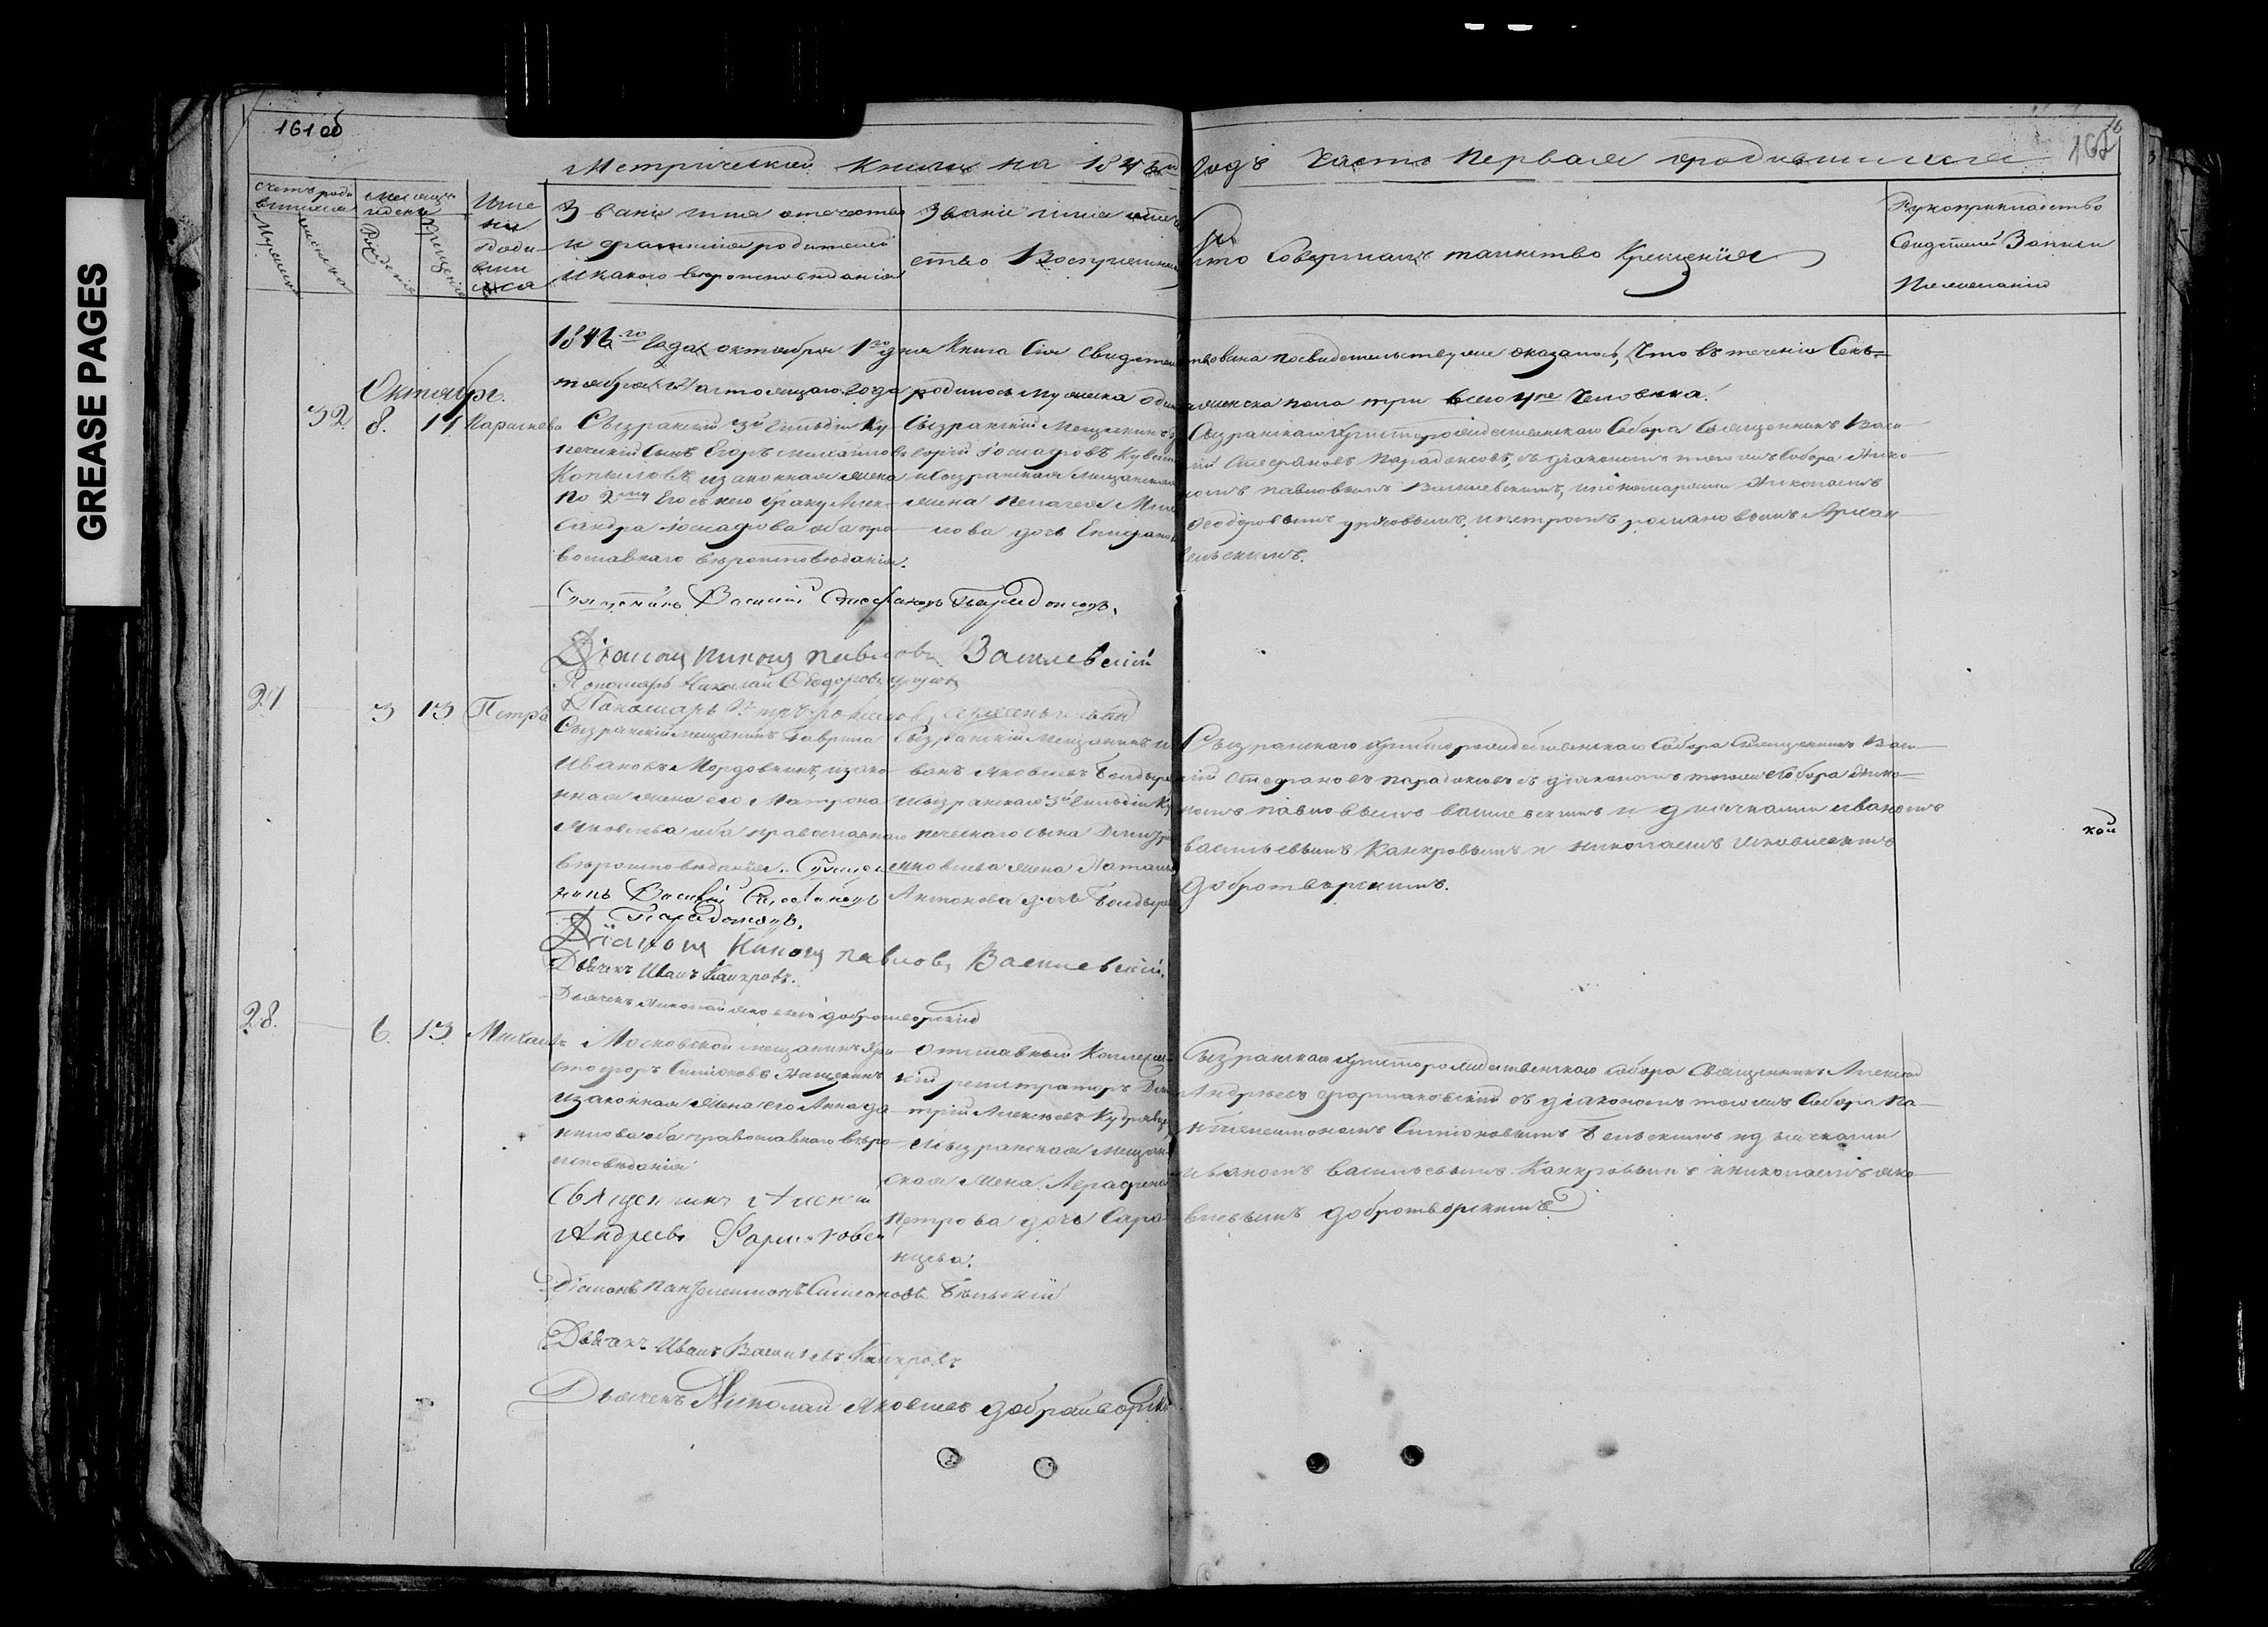 GREASE PAGES
161 об
162
Метрической книги на 184 годъ Часть Первая о родившихся
Счетъ роди
вшихся
Мужеска
женска
Месяцъ
и день
Рожденія
Крещенія
Име
на
роди
вши
хся
Званіе имя отечество
и фамилія родителей
и какого вероисповѣданія
Званіе имя отече
ство Воспріемни
Кто Совершалъ таинство Крещенія
Рукоприкладство
Свидетелей Записи
По желанію
184 го года октября 1го дня Книга Сія Свидетельствована по свидетельству оказалось, Что въ теченіи Сен
тября настоящаго года родилось мужеска одинъ женска пола три всего 4ре Человека.
Октябрь.
32 8. 14 Параскева
Сызранскій 3й Гильдіи Ку
печескій Сынъ Егоръ Михайловъ
Копыловъ, и законная жена
по 2му Его съ нею браку Алек
сандра Іосафова оба пра
вославнаго вероисповѣданія.
Сызранскій Мещанинъ
Іосафовъ
и Сызранская Мещанская
жена Пелагея
дочь
Сызранскаго Христорождественскаго Собора Священникъ Васи
лій Стефановъ Парадоксовъ, съ діакономъ того жъ Собора Нико
номъ Павловымъ Василевскимъ, и пономарями Николаемъ
Феодоровымъ, и Петромъ Романовымъ Архан
гельскимъ.
Священникъ Василій Стефановъ Парадоксовъ.
Діаконъ Никонъ Павловъ Василевскій
Пономарь Николай Феодоровъ
Пономарь Петръ Романовъ
27 3 13 Петръ
Сызранскій мещанинъ Гаврила
Ивановъ Мордовкинъ, и зако
нная жена его Матрона
Яковлева оба православнаго
вероисповѣданія.
Сызранскій Мещанинъ И
ванъ Яковлевъ Болдыре
и Сызранскаго 3й Гильдіи Ку
печескаго сына Дмитрія
Яковлева жена Наталь
Антонова дочь Болдыре
Сызранскаго Христорождественскаго Собора Священникъ Васи
лій Стефановъ Парадоксовъ съ діакономъ того жъ Собора Нико
номъ Павловымъ Василевскимъ и дьячками Иваномъ
Васильевымъ Канкровымъ и Николаемъ Яковлевымъ
Добротворскимъ.
Священ
никъ Василій Стефановъ
Парадоксовъ.
Діаконъ Никонъ Павловъ Василевскій.
Дьячекъ Иванъ Канкровъ.
Дьячекъ Николай Яковлевъ Добротворскій
кой
28. 6. 13 Михаилъ
Московской мещанинъ Хри
стофоръ Симоновъ Нащекинъ
и законная жена его Анна Да
нилова оба православнаго веро
исповѣданія
Отставный Коллеж
кій регистраторъ Дми
трій Алексеевъ Кудрявце
и Сызранская мещан
ская жена Аграфена
Петрова дочь Сара
нцева.
Сызранскаго Христорождественскаго Собора Священникъ Алексей
Андреевъ Фармаковскій съ діакономъ того жъ Собора Па
нтелеимономъ Симоновымъ Бельскимъ и дьячками
Иваномъ Васильевымъ Канкровымъ и Николаемъ Яко
влевымъ Добротворскимъ
Священникъ Алексей
Андреевъ Фармаковск
Діаконъ Пантелеимонъ Симоновъ Бельскій
Дьячекъ Иванъ Васильевъ Канкровъ
Дьячекъ Николай Яковлевъ Добротворскі